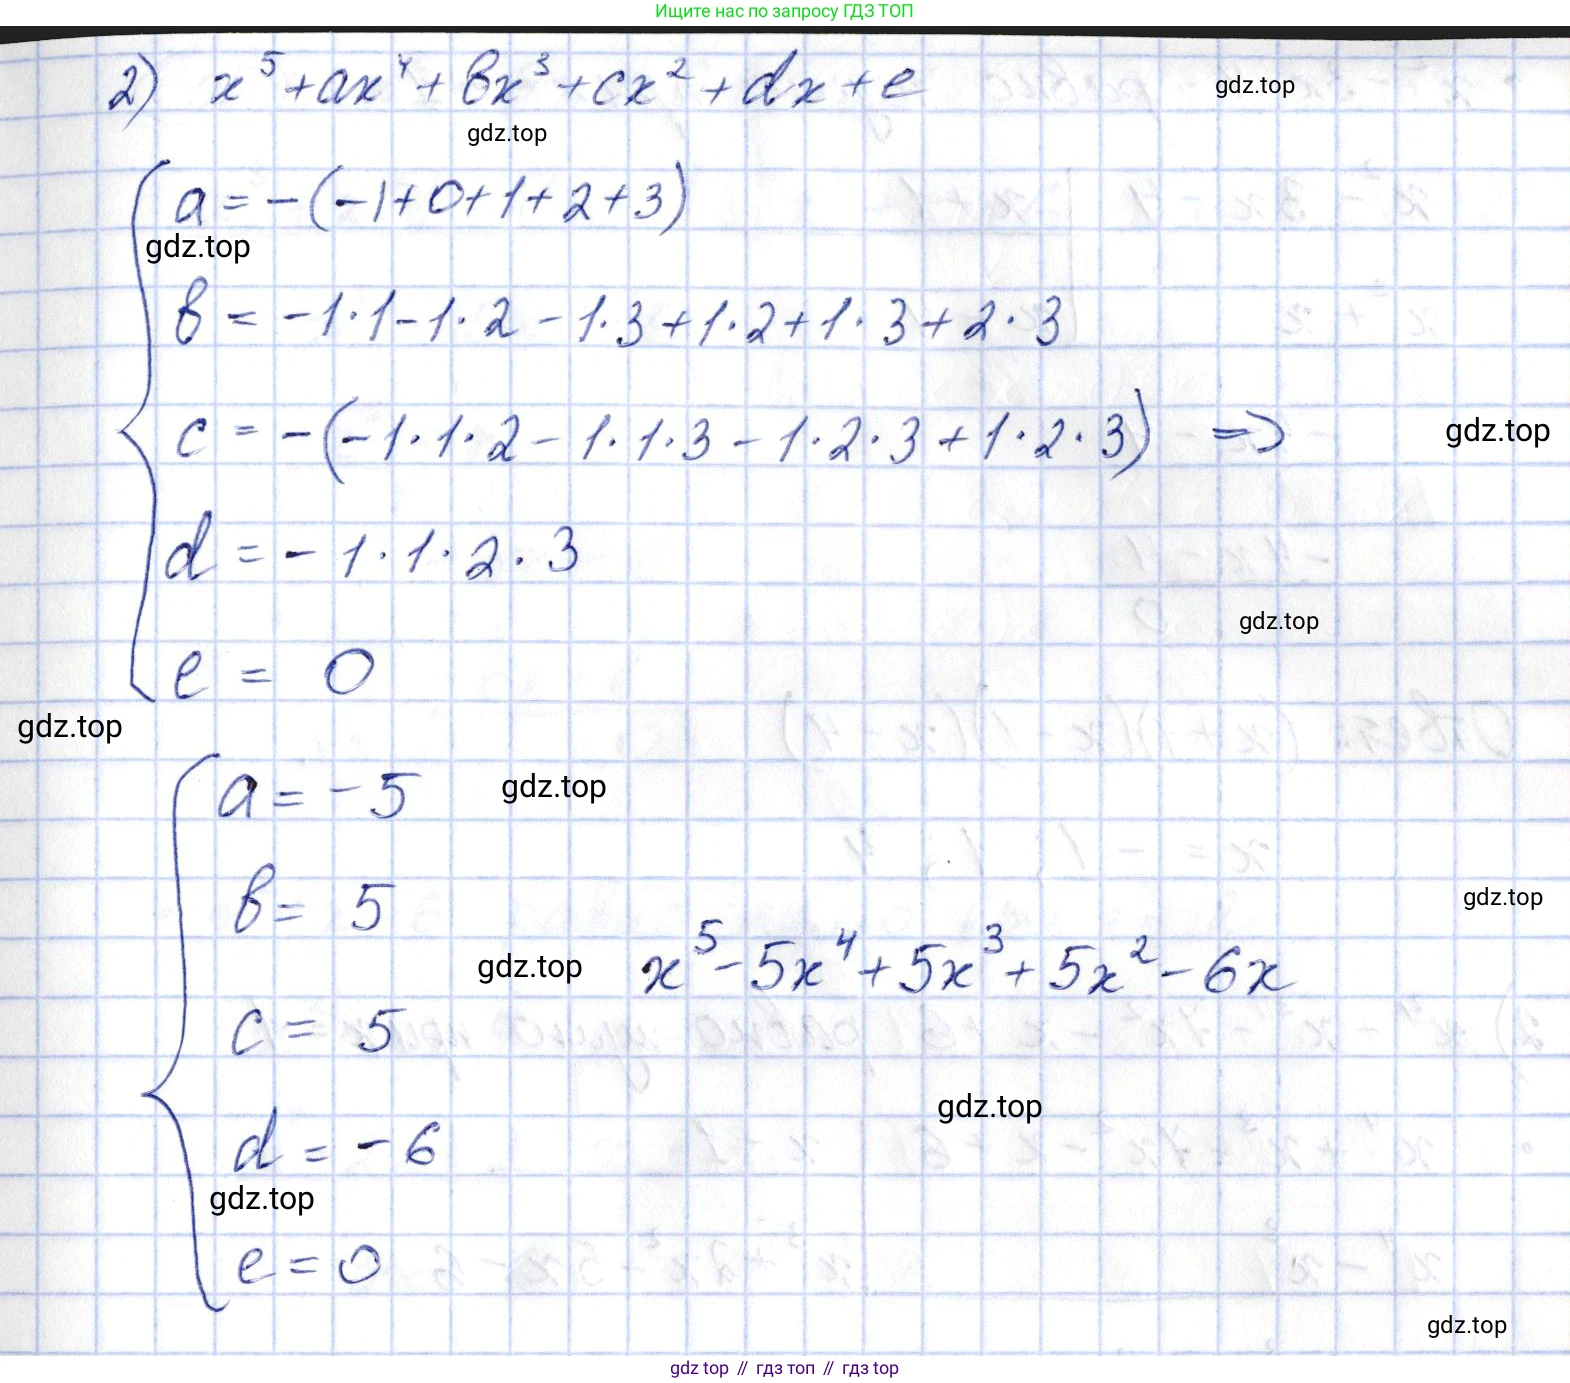 Ищите нас по запросу ГДЗ ТОП
2) x⁵+ax⁴+bx³+cx²+dx+e
gdz.top
gdz.top
a=-(-1+0+1+2+3)
gdz.top
b = -1·1-1·2-1·3+1·2+1·3+2·3
c = -(-1·1·2-1·1·3-1·2·3+1·2·3) =>
gdz.top
d = -1·1·2·3
gdz.top
e = 0
gdz.top
a=-5
gdz.top
b= 5
gdz.top
x⁵-5x⁴+5x³+5x²-6x
gdz.top
c= 5
gdz.top
d=-6
gdz.top
e=0
gdz.top
gdz top // гдз топ // гдз top